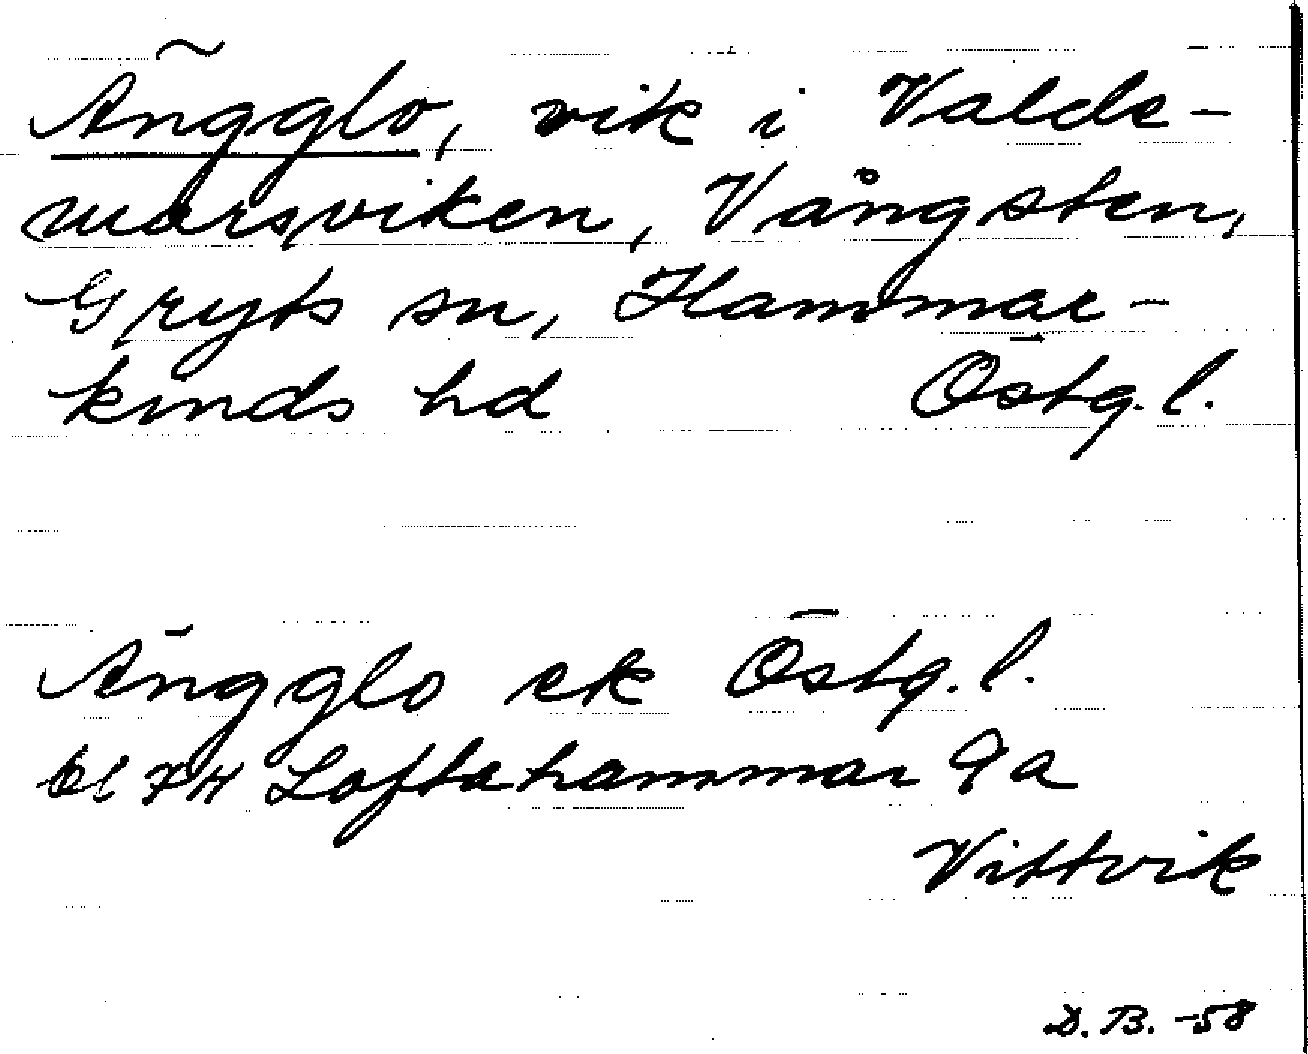 Ängglo, vik i Valde-
marsviken, Vångsten,
Gryts sn, Hammar-
kinds hd Östg. l.
Ängglo ek Östg. l.
bl 7H Loftahammar 9a
Vittvik
D.B. -58